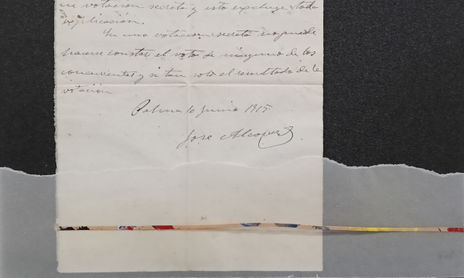 una votacion secreta y esto excluye toda
explicación.
En una votacion secreta no puede
hacerse constar el voto de ninguno de los
concurrentes y si tan solo el resultado de la
votación
Palma 10 Junio 1915
Jose Alcover